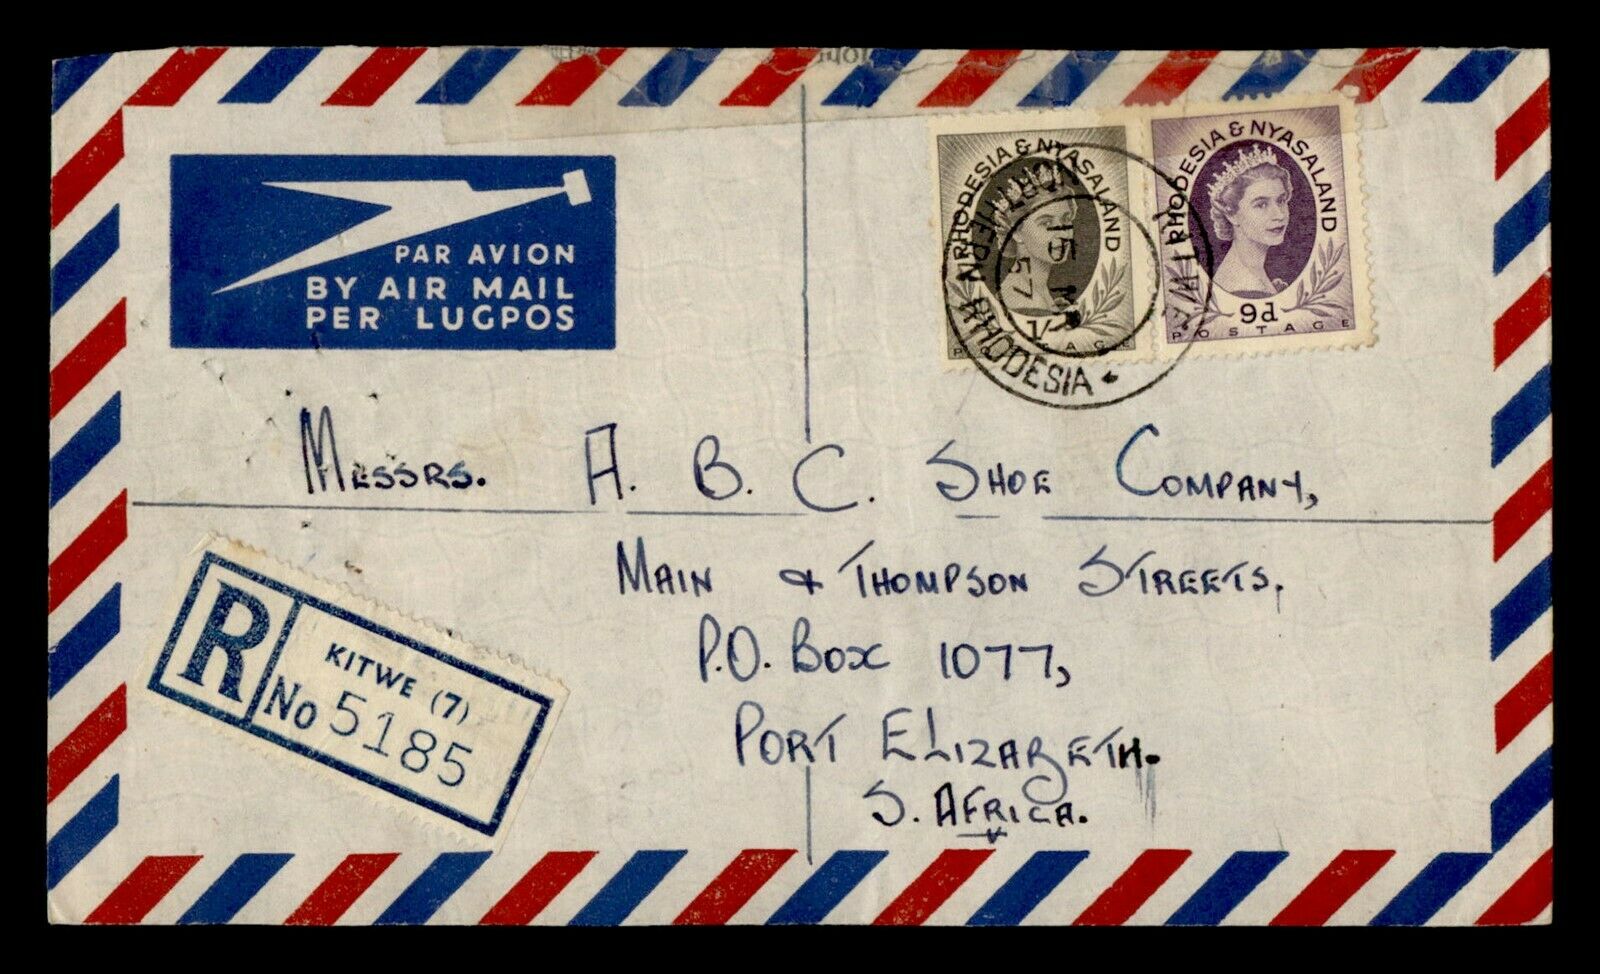 PAR AVION
BY AIR MAIL
PER LUGPOS
RHODESIA & NYASALAND
1/-
POSTAGE
RHODESIA & NYASALAND
9d
POSTAGE
NORTHERN RHODESIA
15
57
MESSRS. A. B. C. SHOE COMPANY,
MAIN & THOMPSON STREETS,
P.O. BOX 1077,
PORT ELIZABETH.
S. AFRICA.
R
KITWE (7)
No 5185